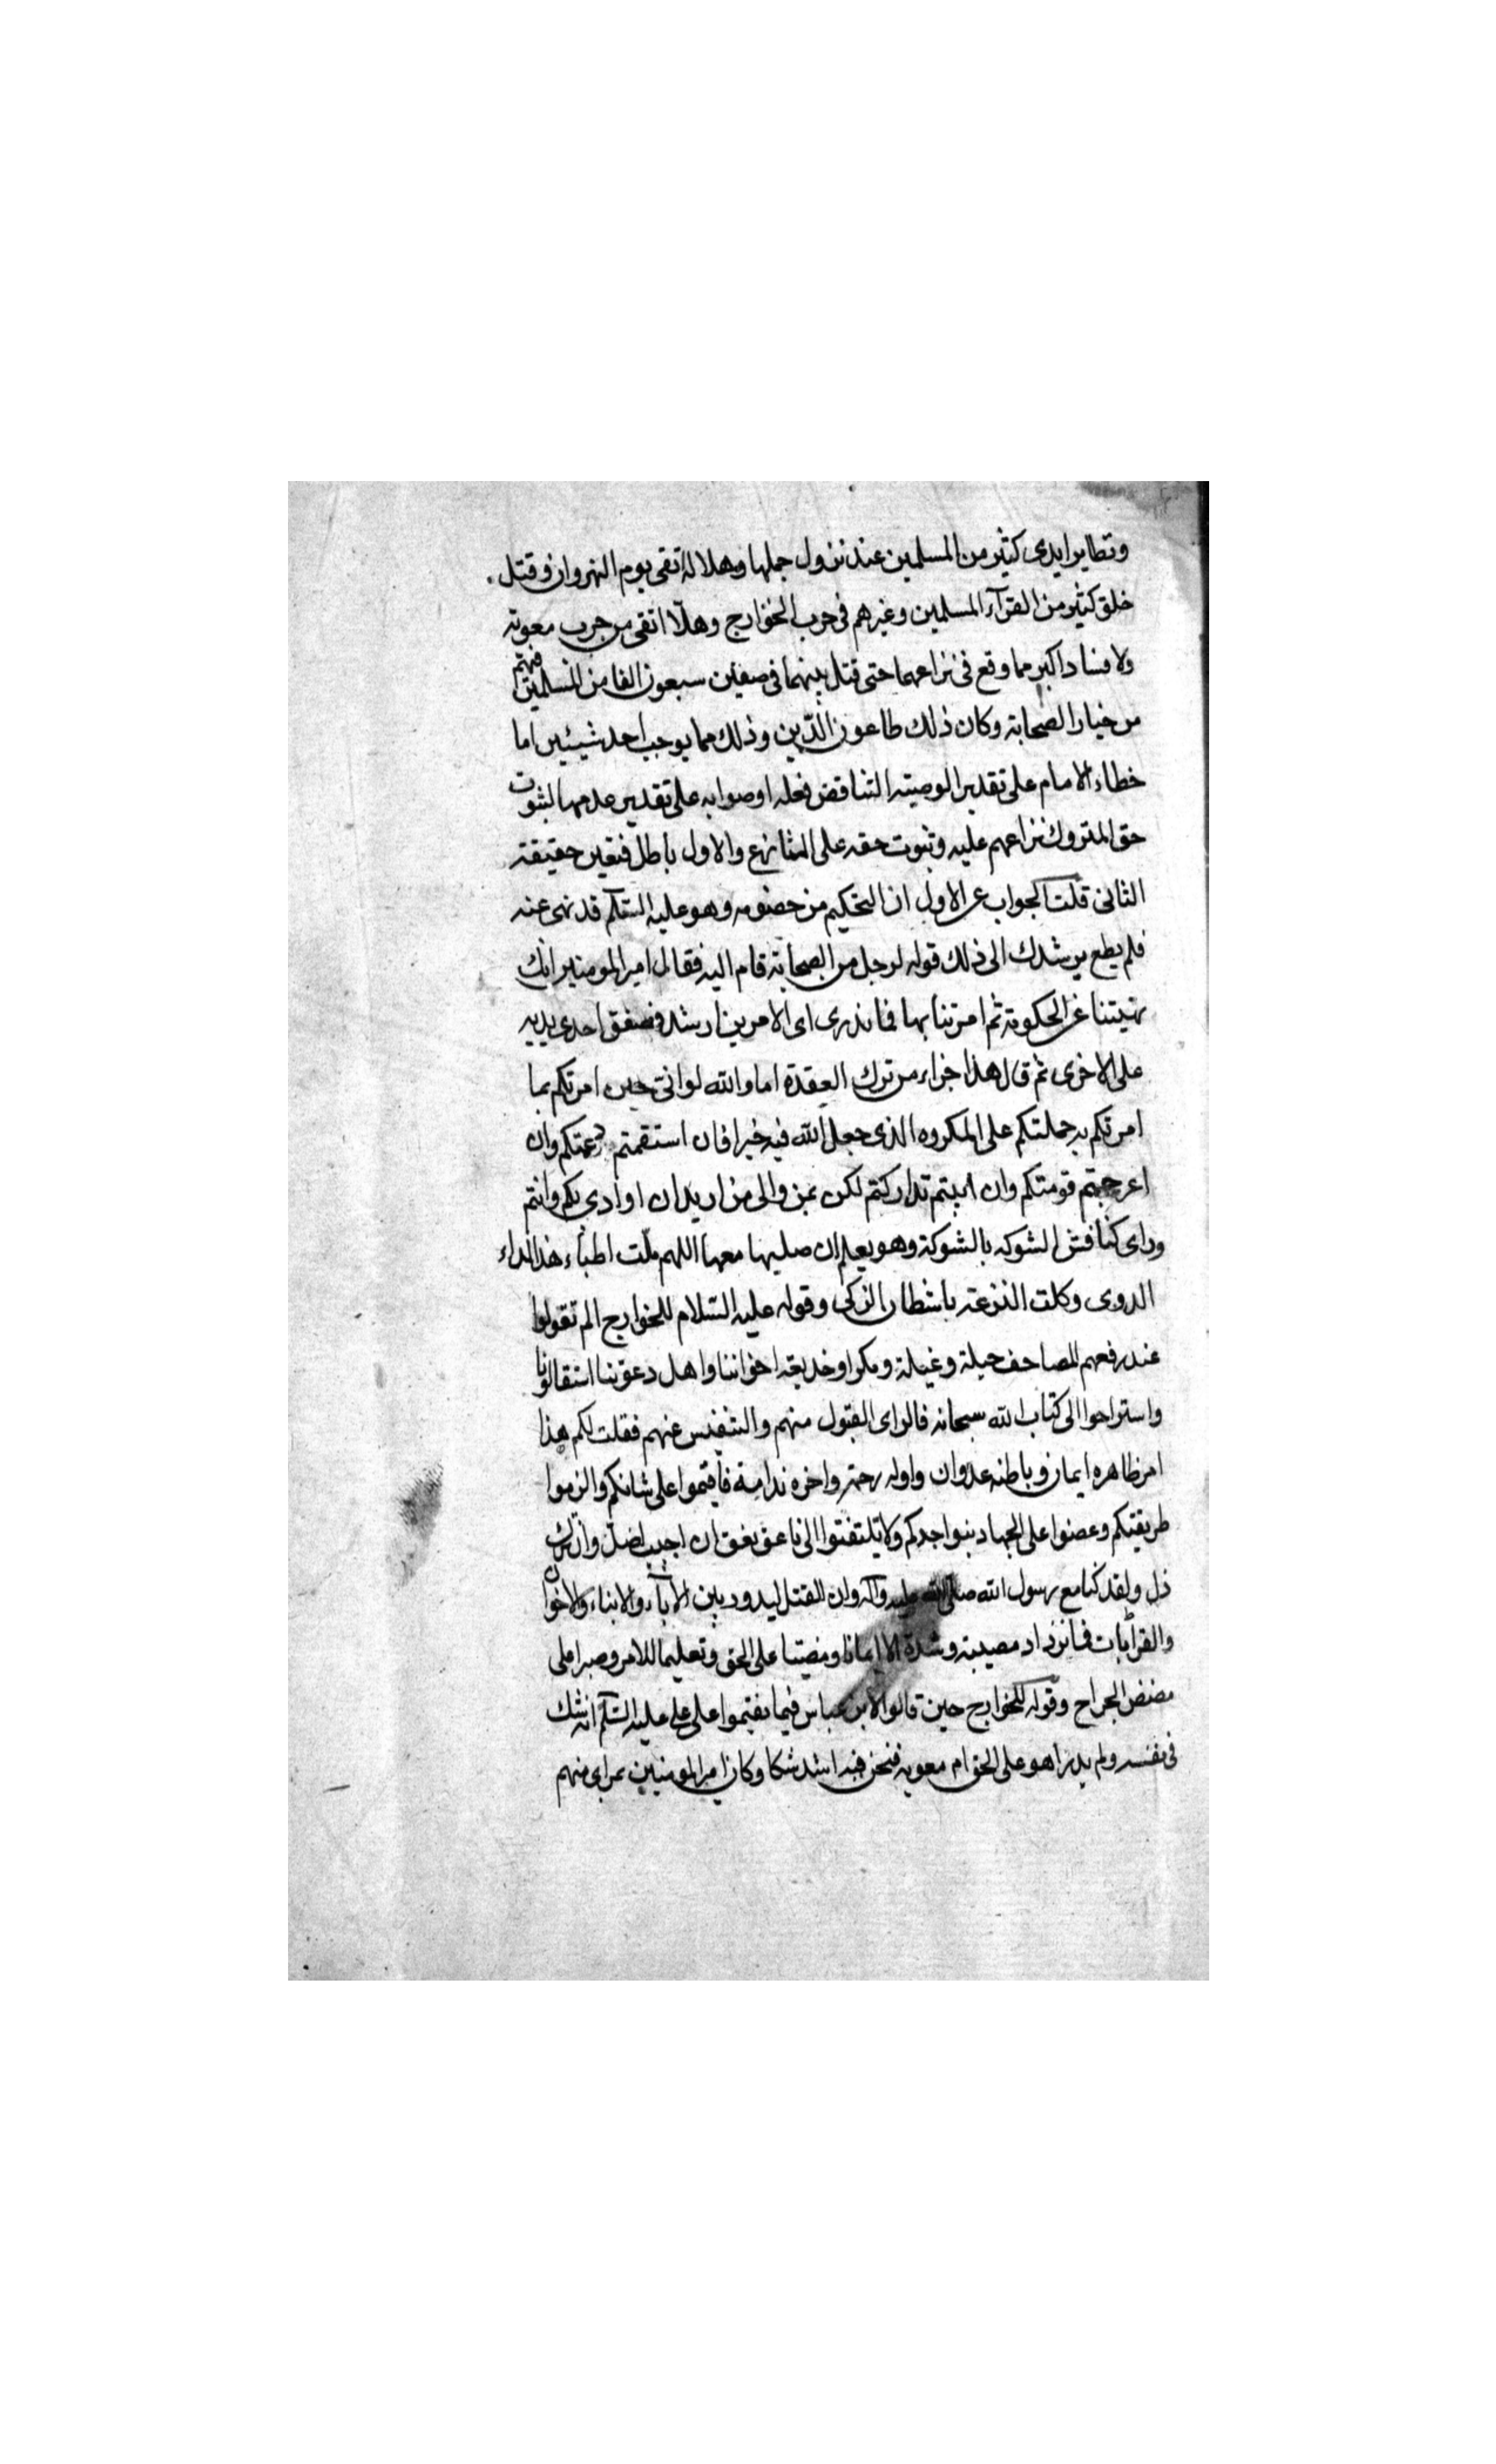 وتطاير ايدى كثير من المسلمين عند نزول جملها وهلا له تقى يوم النهروان وقتل
خلق كثير من القرآء المسلمين وغيرهم فى حرب الخوارج وهلّا اتقى من حرب معوية
ولا فساد اكبر مما وقع فى نزاعهما حتى قتل بينهما فى صفين سبعون الفا من المسلمين فيهم
من خيار الصحابة وكان ذلك طاعون الدّين وذلك مما يوجب احد شيئين اما
خطاء الامام على تقدير الوصيته التناقض فعله او صوابه على تقدير عدمها لثبوت
حق المتروك نزاعهم عليه وثبوت حقه على المنازع والاول باطل فتعين حقيقة
الثانى قلت الجواب عن الاول ان التحكيم من خصومه وهو عليه السّلم قد نهى عنه
فلم يطع يرشدك الى ذلك قوله لرجل من الصحابة قام اليه فقال امير المومنين انك
نهيتنا عن الحكومة ثم امرتنا بها فما ندرى اى الامرين ارشد فصفق احدى يديه
على الاخرى ثم قال هذا جزاء من ترك العقدة اما والله لو انى حين امرتكم بما
امرتكم به حملتكم على المكروه الذى جعل الله فيه خيرا فان استقمتم وان
اعوججتم قومتكم وان ابيتم تداركتم لكن بمن والى من اريد ان اوادى بكم وانتم
وداى كناقش الشوكه بالشوكة وهو يعلم ان صليها معها اللهم ملّت اطبّاء هذا الداء
الدوى وكلت النزعة باشطان الزكى وقوله عليه السّلام للخوارج الم تقولوا
عند رفعهم المصاحف حيلة وغيلة ومكرا وخديعة اخواننا واهل دعوتنا استقالونا
واستراحوا الى كتاب الله سبحانه فالراى القبول منهم والتنفيس عنهم فقلت لكم هذا
امر ظاهره ايمان وباطنه عدوان واوله رحمة واخره ندامة فاقيموا على شانكم والزموا
طريقتكم وعضوا على الجهاد بنواجدكم ولا تلتفتوا الى ناعق نعق ان اجيب اضلّ وان ترك
ذل ولقد كنا مع رسول الله صلى الله عليه وآله وان القتل ليدور بين الآباء والابناء والاخوان
والقرابات فما نزداد مصيبة وشدة الا ايمانا ومضيّا على الحق وتعليما للامر وصبرا على
مضض الجراح وقوله للخوارج حين قالوا لابن عباس فيما نقموا على على عليه السّلم انه شك
فى نفسه ولم يدر اهو على الحق ام معويه فنحن فيه اشد شكا وكان امير المومنين بمراى منهم